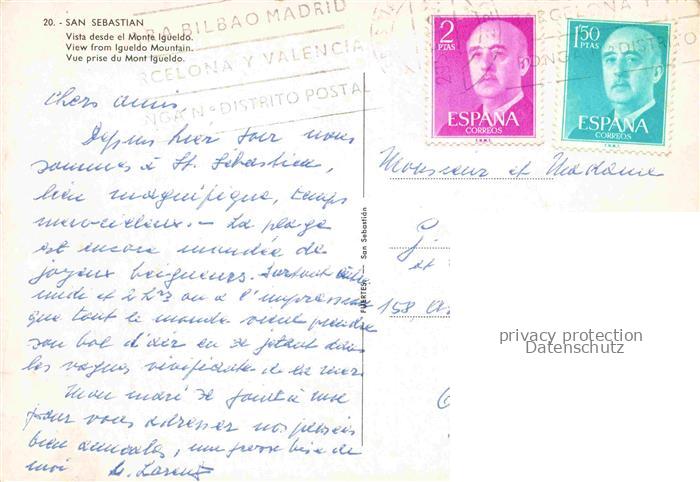 20. - SAN SEBASTIAN
Vista desde el Monte Igueldo.
View from Igueldo Mountain.
Vue prise du Mont Igüeldo.
RA BILBAO MADRID
RCELONA Y VALENCIA
NGA Nº DISTRITO POSTAL
2
PTAS
ESPAÑA
CORREOS
1'50
PTAS
ESPAÑA
CORREOS
Chers amis
Depuis hier soir nous
sommes à St. Sébastien,
lieu magnifique, temps
merveilleux. - La plage
est encore inondée de
joyeux baigneurs. Surtout entre
midi et 2 hrs on a l'impression
que tout le monde vient prendre
son bol d'air en se jetant dans
les vagues vivifiantes de la mer.
Mon mari se joint à moi
pour vous adresser nos pensées
bien amicales, une grosse bise de
moi
Monsieur et Madame
G.
et
158 A
FUERTES - San Sebastián
privacy protection
Datenschutz